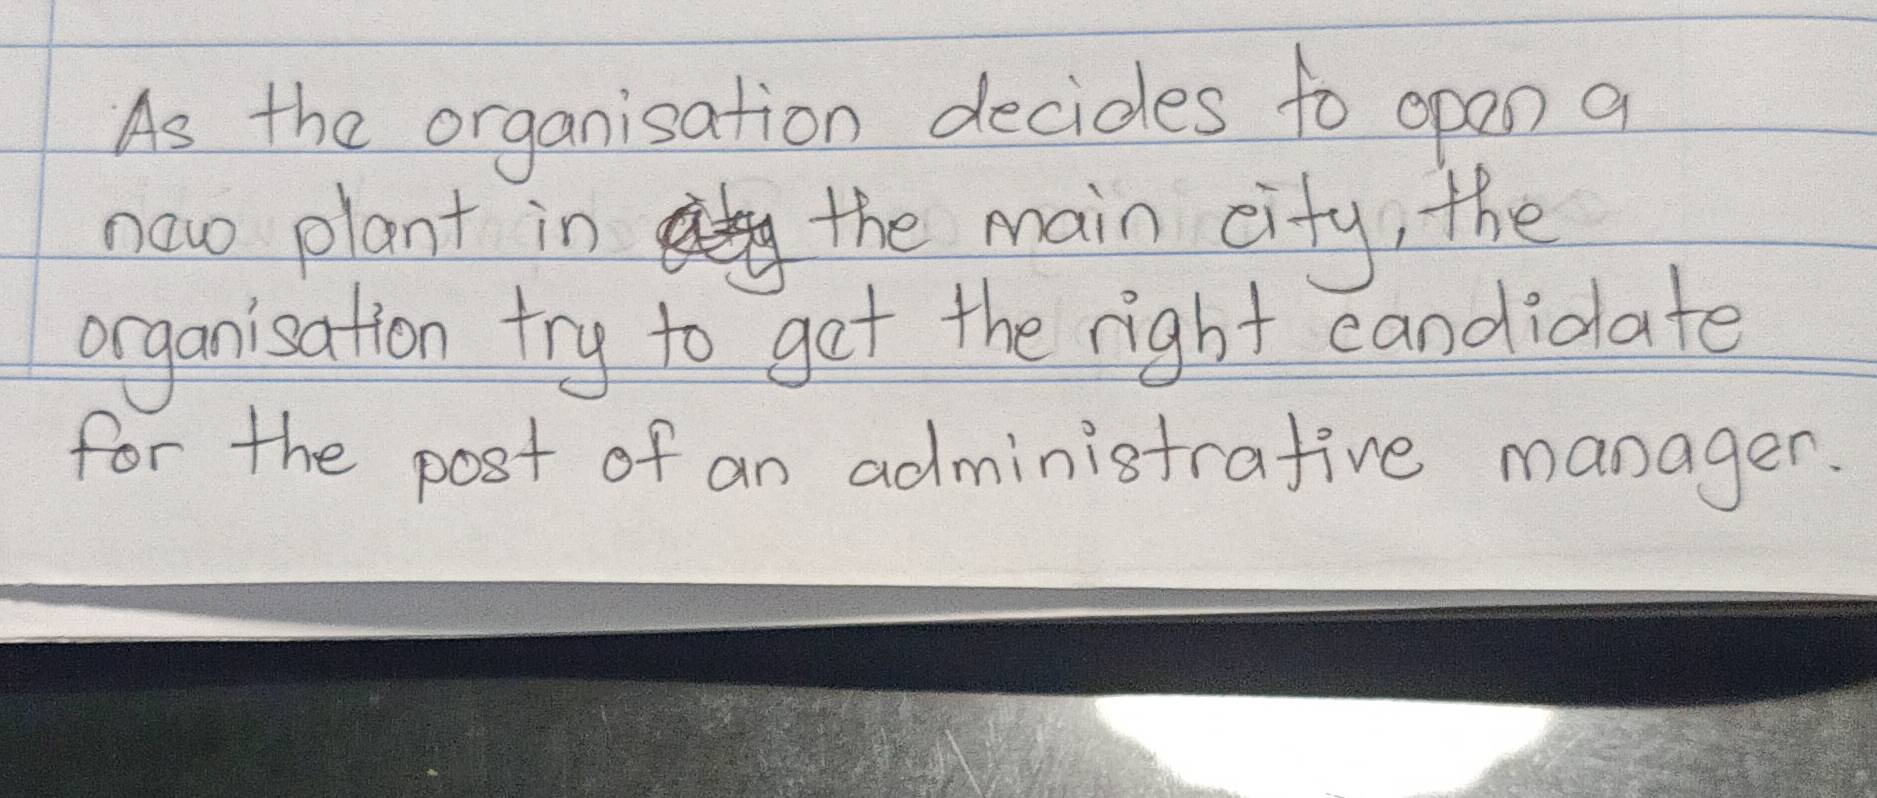 As the organisation decides to open a
new plant in the main city, the
organisation try to get the right candidate
for the post of an administrative manager.